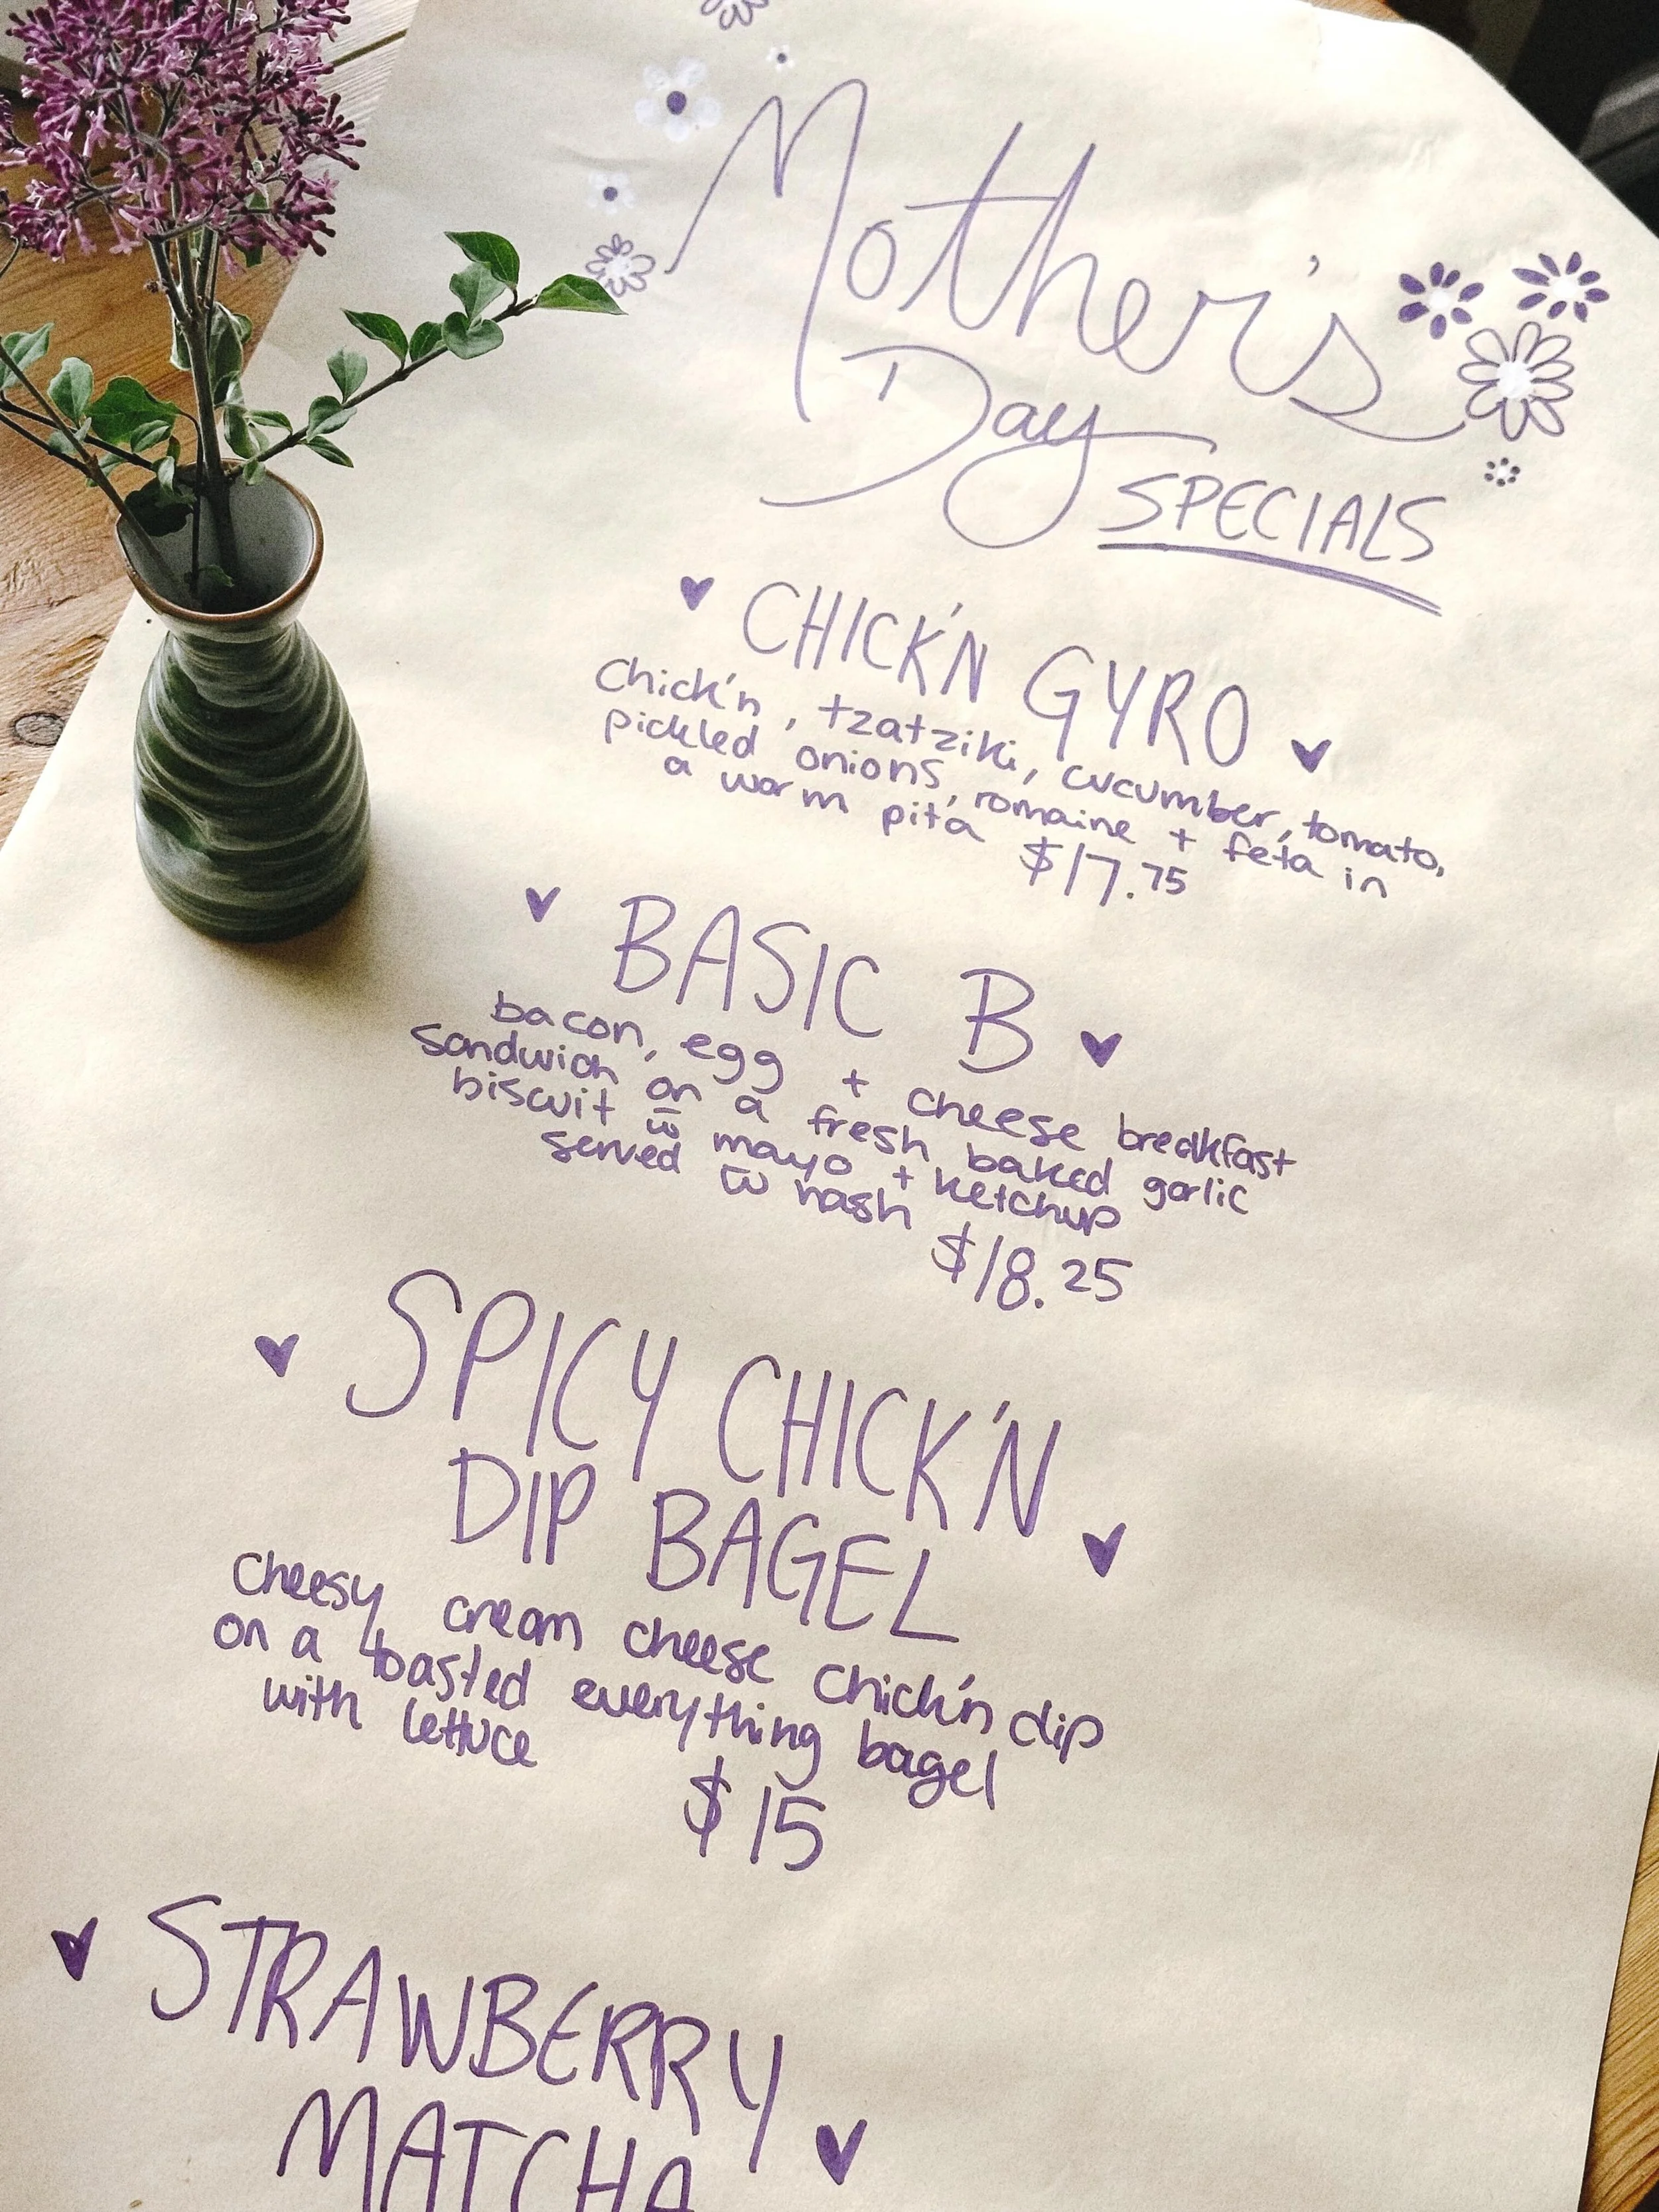 Mother's
Day SPECIALS
CHICK'N GYRO
Chick'n, tzatziki, cucumber, tomato,
pickled onions, romaine + feta in
a warm pita $17.75
BASIC B
bacon, egg + cheese breakfast
sandwich on a fresh baked garlic
biscuit w̄ mayo + ketchup
served w̄ hash $18.25
SPICY CHICK'N
DIP BAGEL
cheesy cream cheese chick'n dip
on a toasted everything bagel
with lettuce
$15
STRAWBERRY
MATCHA